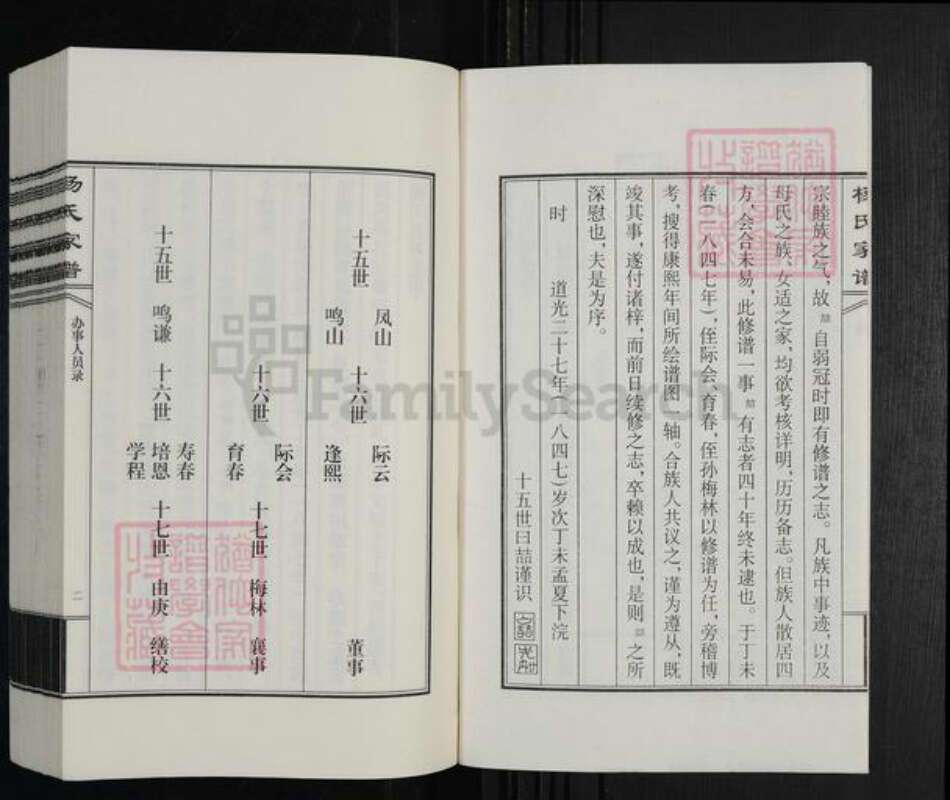 杨氏家谱
宗睦族之气，故喆自弱冠时即有修谱之志。凡族中事迹，以及
母氏之族、女适之家，均欲考核详明，历历备志。但族人散居四
方，会合未易，此修谱一事，喆有志者四十年终未逮也。于丁未
春（一八四七年），侄际会、育春，侄孙梅林以修谱为任，旁稽博
考，搜得康熙年间所绘谱图一轴。合族人共议之，谨为遵从，既
竣其事，遂付诸梓，而前日续修之志，卒赖以成也，是则喆之所
深慰也，夫是为序。
时　道光二十七年（一八四七）岁次丁未孟夏下浣
十五世曰喆谨识
十五世　凤山　鸣山　十六世　际云　逢熙　董事
十六世　际会　育春　十七世　梅林　襄事
十五世　鸣谦　十六世　寿春　培恩　学程　十七世　由庚　缮校
杨氏家谱
办事人员录
二
FamilySearch